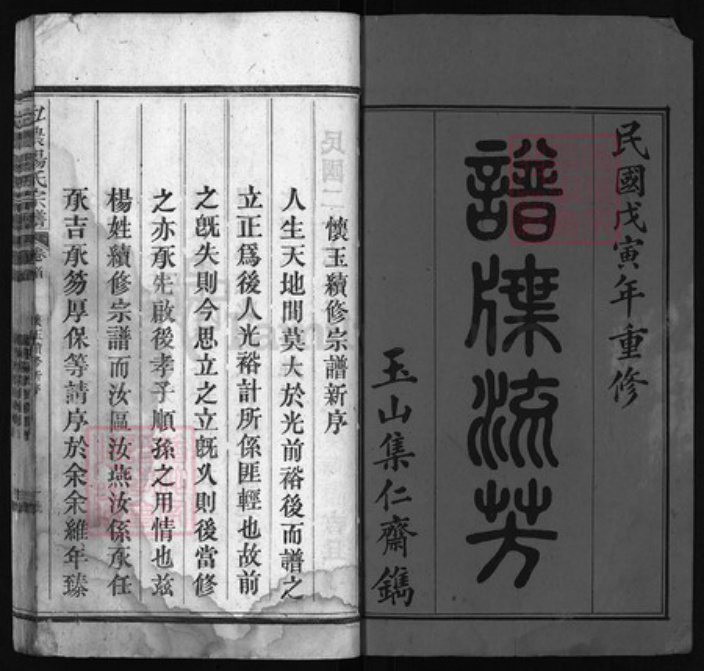 民國戊寅年重修
譜牒流芳
玉山集仁齋鐫
懷玉續修宗譜新序
人生天地間莫大於光前裕後而譜之
立正爲後人光裕計所係匪輕也故前
之旣失則今思立之立旣久則後當修
之亦承先啟後孝子順孫之用情也兹
楊姓續修宗譜而汝區汝燕汝係承任
承吉承芴厚保等請序於余余維年臻
楊氏宗譜
卷首